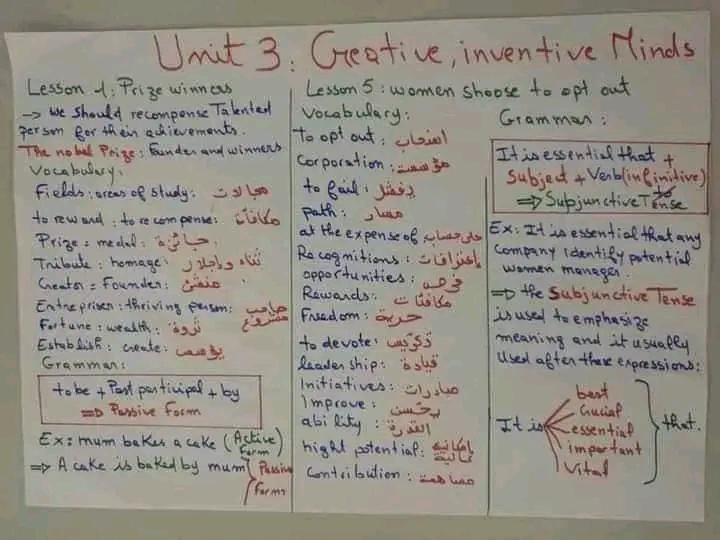 Unit 3: Creative, inventive Minds
Lesson 1: Prize winners
→ We should recompense Talented
person for their achievements.
The nobel Prize: Founder and winners
Vocabulary:
Fields: areas of study: مجالات
to reward: to recompense: مكافآت
Prize = medal: جائزة
Tribute: homage: ثناء وإجلال
Creator = Founder: منشئ
Entrepriser: thriving person: صاحب مشروع
Fortune: wealth: ثروة
Establish: create: يؤسس
Grammar:
to be + Past participal + by
⇒ Passive Form
Ex: mum bakes a cake (Active Form)
⇒ A cake is baked by mum (Passive Form)
Lesson 5: women shoose to opt out
Vocabulary:
To opt out: انسحاب
Corporation: مؤسسة
to fail: يفشل
path: مسار
at the expense of: على حساب
Recognitions: إعترافات
opportunities: فرص
Rewards: مكافئات
Freedom: حرية
to devote: تكريس
leadership: قيادة
Initiatives: مبادرات
Improve: يحسن
ability: القدرة
hight potential: إمكانية عالية
Contribution: مساهمة
Grammar:
It is essential that +
Subject + Verb (infinitive)
⇒ Subjunctive Tense
Ex: It is essential that any
company identify potential
women manager.
⇒ the Subjunctive Tense
is used to emphasize
meaning and it usually
Used after these expressions:
best
Crucial
It is essential that.
important
Vital